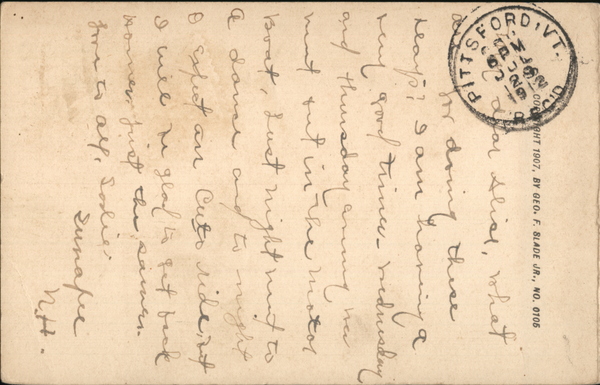 My dear Elsie, what
are you doing these
days? I am having a
very good time. Wednesday
and Thursday evening we
went out in the motor
boat, last night went to
a dance and to-night
I expect an auto ride, but
I will be glad to get back
home just the same.
Love to all,
Sunapee
N.H.
PITTSFORD, VT.
REC'D
COPYRIGHT 1907, BY GEO. F. SLADE JR., NO. 0106